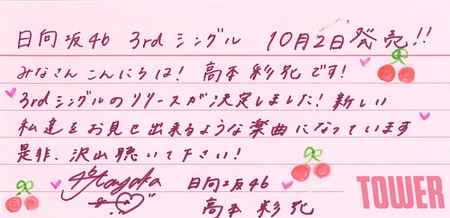 日向坂46 3rdシングル 10月2日発売!!
みなさんこんにちは! 高本彩花です!
3rdシングルのリリースが決定しました! 新しい
私達をお見せ出来るような楽曲になっています
是非、沢山聴いて下さい!
日向坂46
高本彩花
TOWER